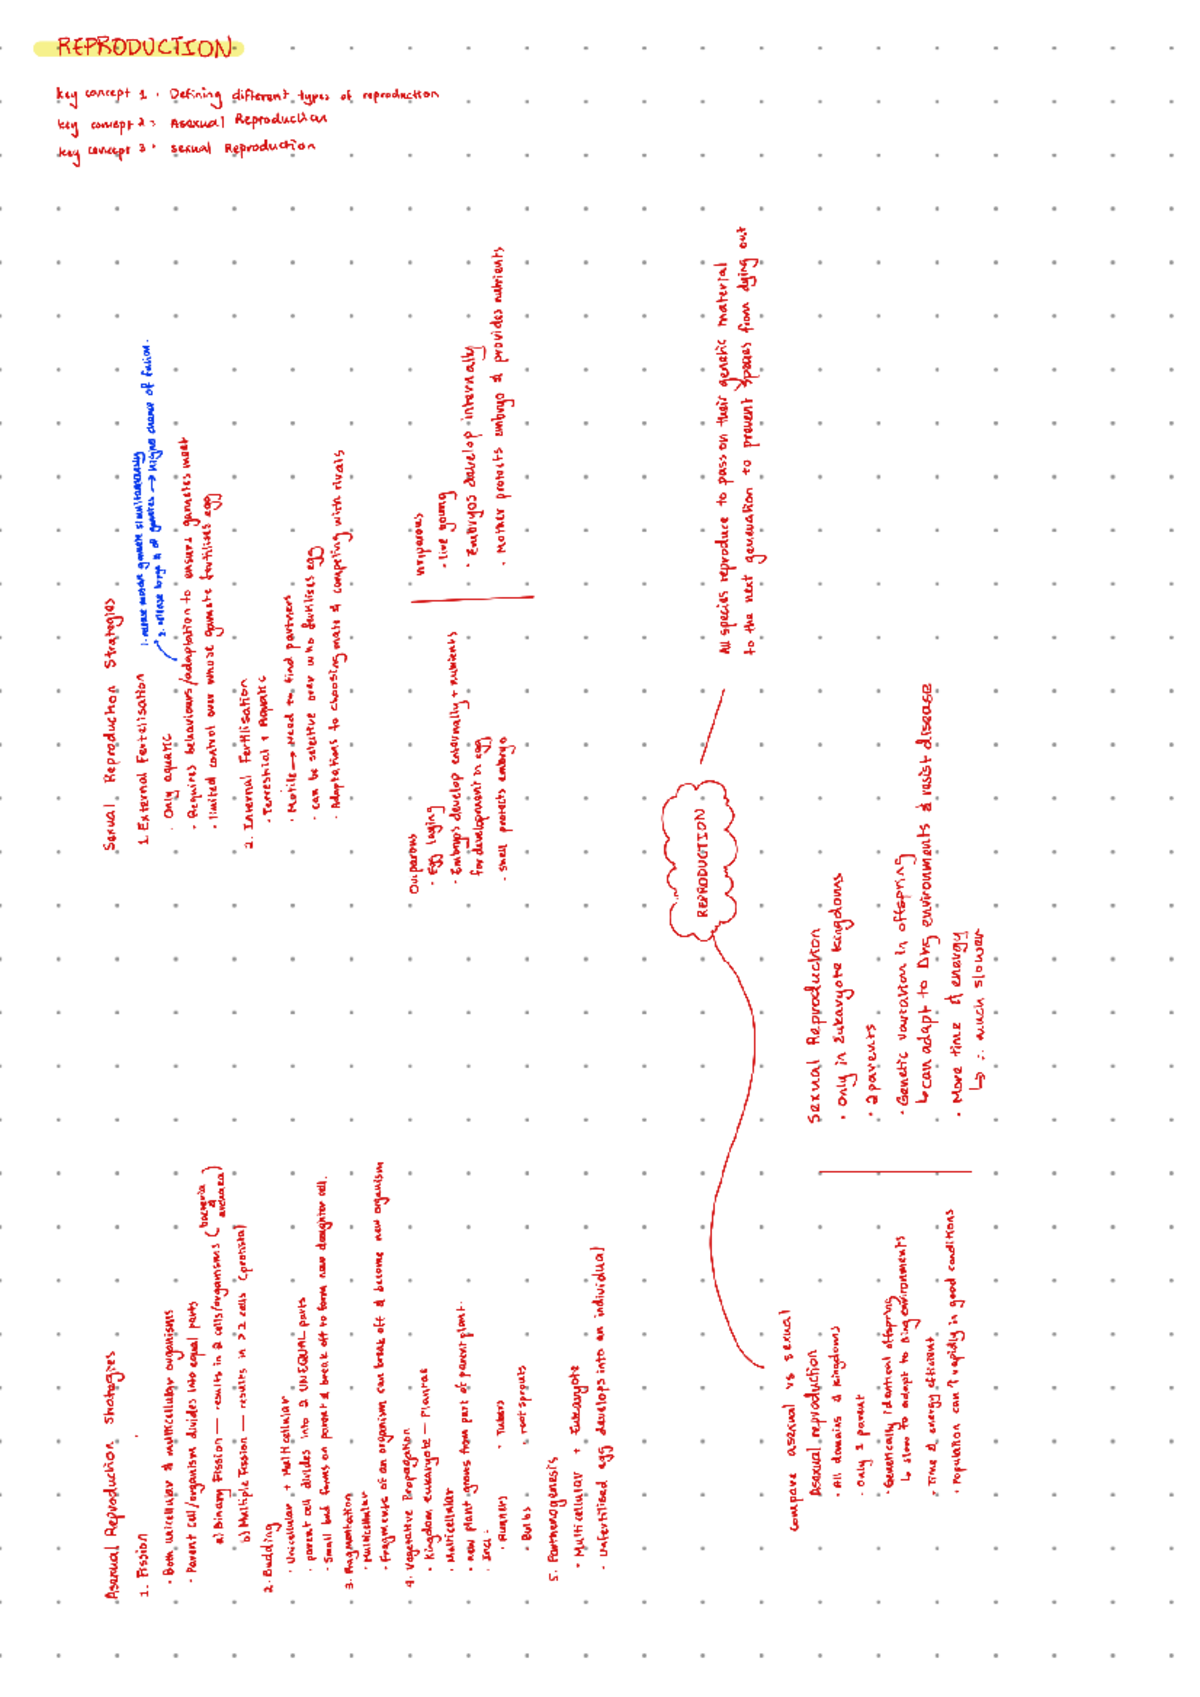 REPRODUCTION
key concept 1 . Defining different types of reproduction
key concept 2 : Asexual Reproduction
key concept 3 . sexual Reproduction
Asexual Reproduction Strategies
1. Fission
. Both unicellular & multicellular organisms
. Parent cell/organism divides into equal parts
a) Binary Fission — results in 2 cells/organisms ( bacteria & archaea )
b) Multiple Fission — results in >2 cells (protista)
2. Budding
. Unicellular + Multicellular
. parent cell divides into 2 UNEQUAL parts
. Small bud forms on parent & break off to form new daughter cell.
3. Fragmentation
. Multicellular
. Fragments of an organism can break off & become new organism
4. Vegetative Propagation
. Kingdom eukaryote — Plantae
. Multicellular
. new plant grows from part of parent plant.
. Incl :
. Runners . Tubers
. Bulbs . root sprouts
5. Parthenogenesis
. Multicellular + Eukaryote
. Unfertilised egg develops into an individual
Sexual Reproduction Strategies
1. External Fertelisation
1. release gamete simultaneously
2. release large n of gametes → higher chance of fusion.
. Only aquatic
. Requires behaviours/adaptation to ensure gametes meet
. limited control over whose gamete fertilises egg
2. Internal Fertilisation
. Terrestrial + Aquatic
. Motile → need to find partners
. can be selective over who fertilises egg
. Adaptations to choosing mate & competing with rivals
Oviparous
. Egg laying
. Embryos develop externally + nutrients
for development in egg
. shell protects embryo
Viviparous
. live young
. Embryos develop internally
. Mother protects embryo & provides nutrients
REPRODUCTION
All species reproduce to pass on their genetic material
to the next generation to prevent species from dying out
compare asexual vs sexual
Asexual reproduction
. All domains & kingdoms
. Only 1 parent
. Genetically identical offspring
↳ slow to adapt to Δing environments
. Time & energy efficient
. Population can ↑ rapidly in good conditions
Sexual Reproduction
. Only in Eukaryote kingdoms
. 2 parents
. Genetic variation in offspring
↳ can adapt to Δing environments & resist disease
. More time & energy
↳ ∴ much slower